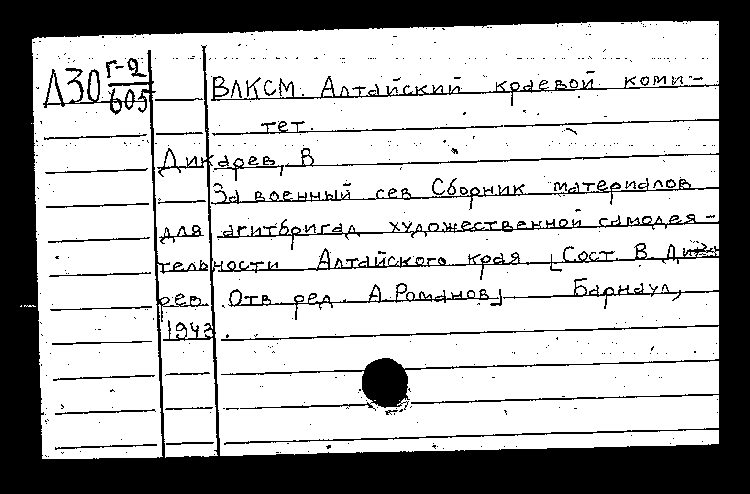 Л30 Г-2/605
ВЛКСМ. Алтайский краевой коми-
тет.
Дикарев, В
За военный сев Сборник материалов
для агитбригад художественной самодея-
тельности Алтайского края. [Сост. В. Дика
рев. Отв ред. А. Романов] Барнаул,
1943.